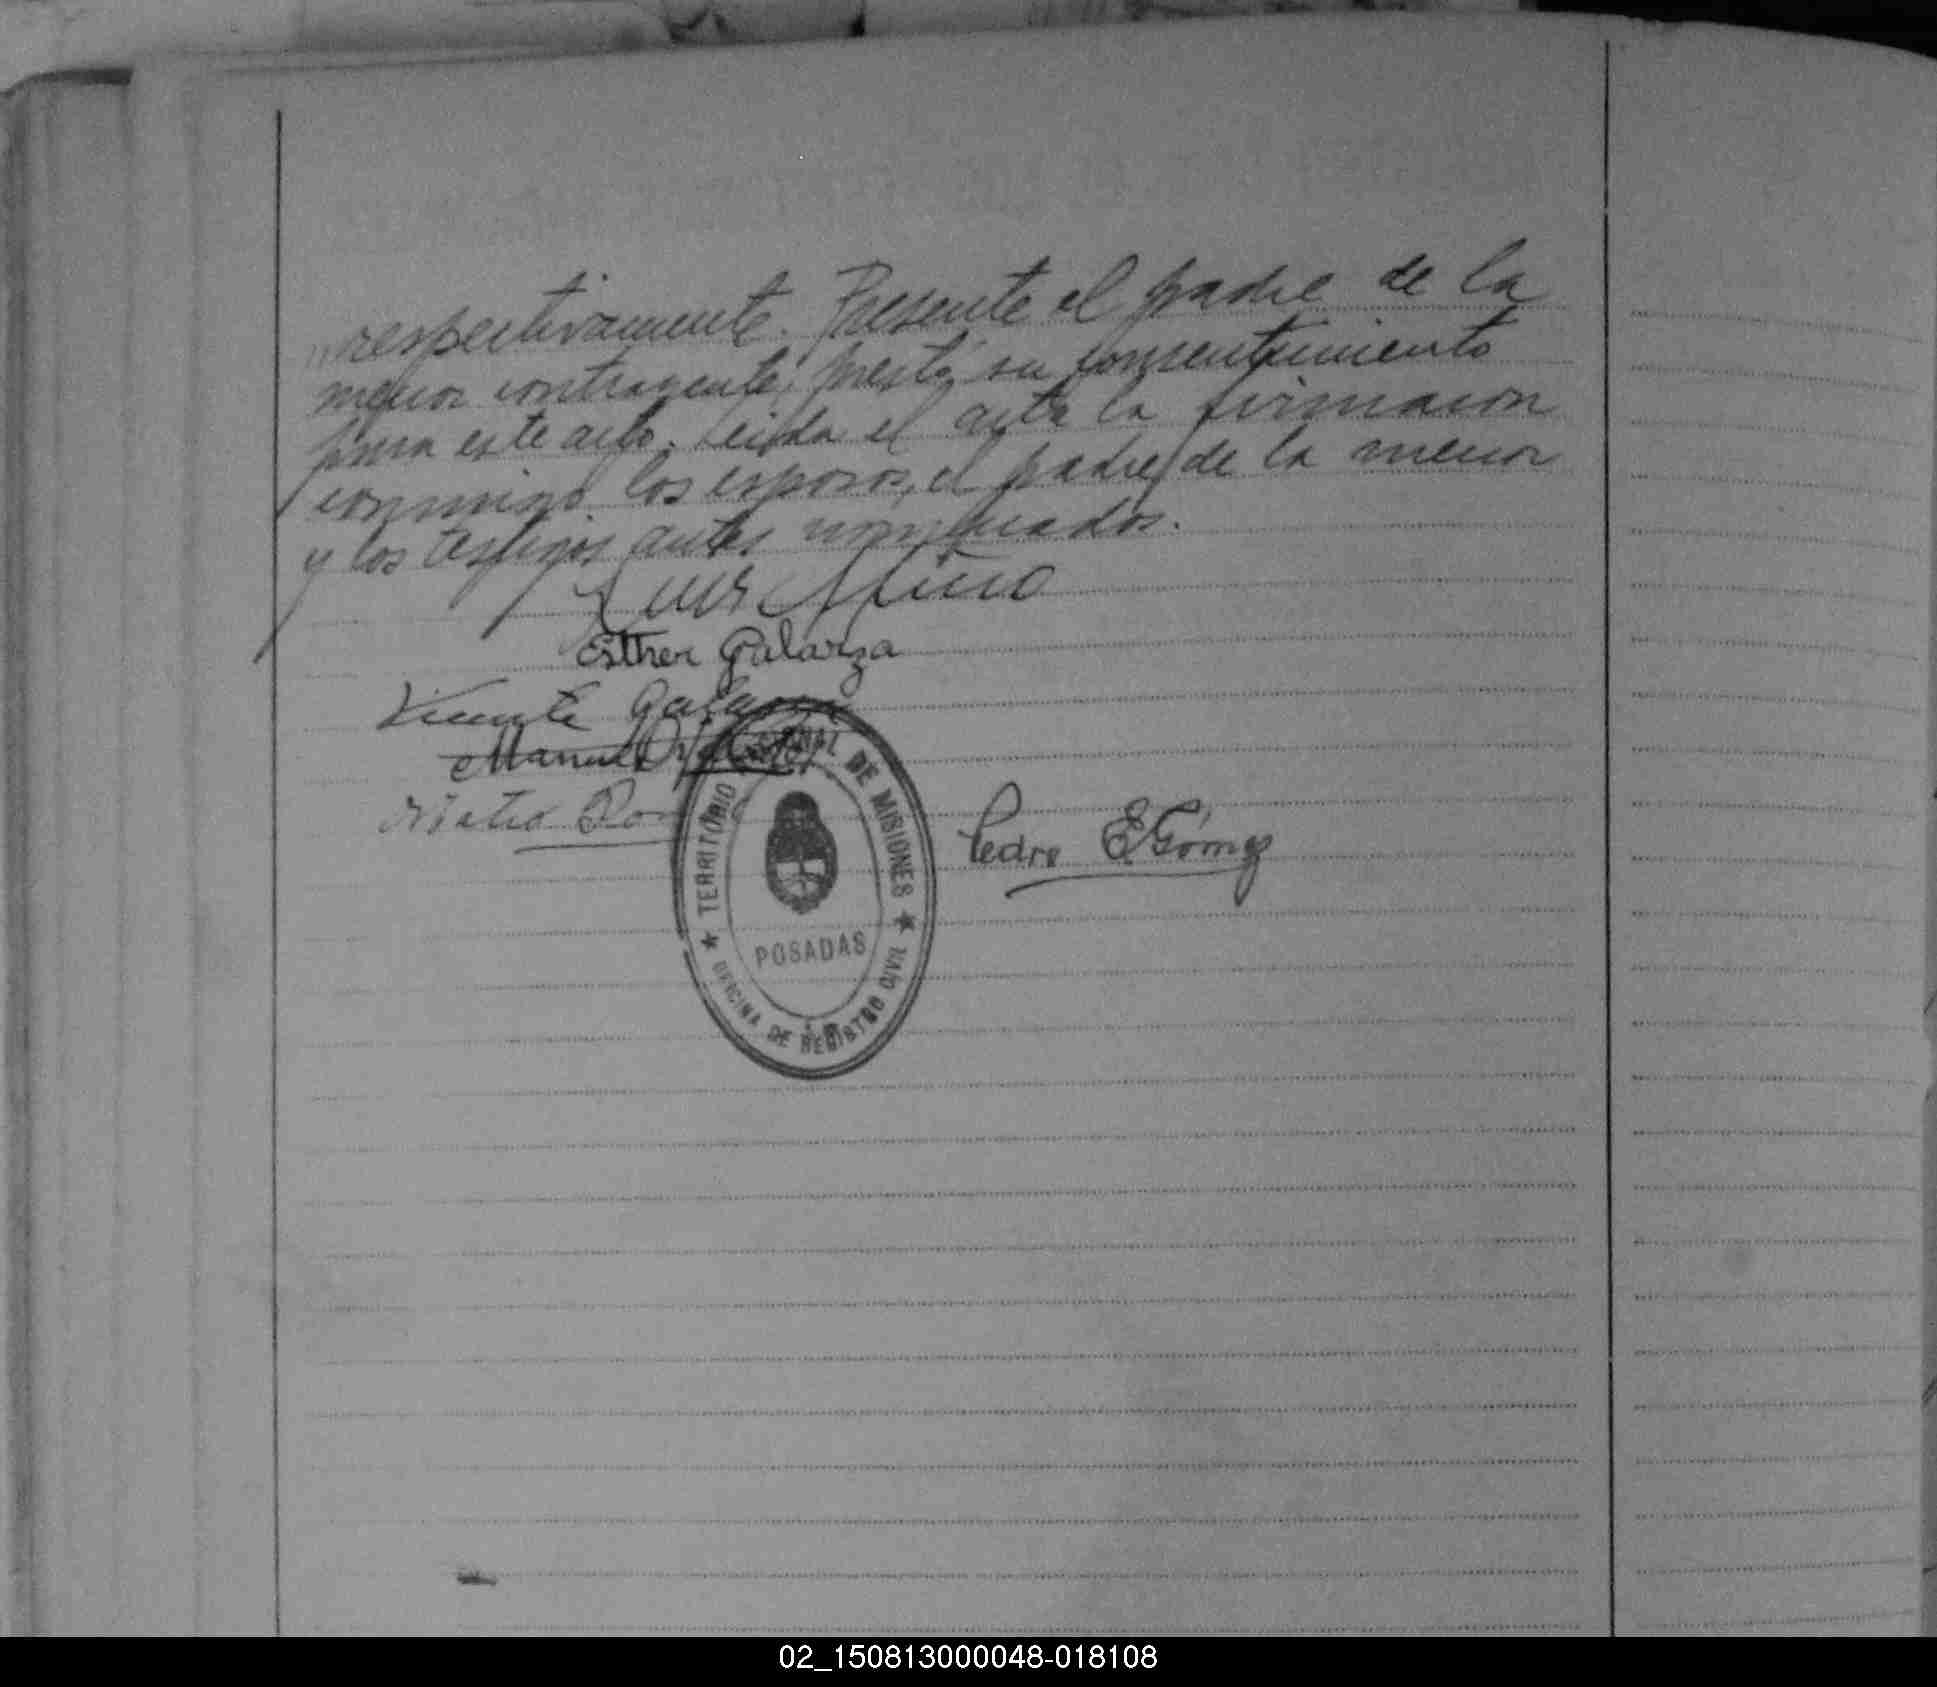 respectivamente. Presente el padre de la
menor contrayente, prestó su consentimiento
para este acto. Leída el acta la firmaron
conmigo los esposos, el padre de la menor
y los testigos antes nombrados.
Luis Miño
Esther Galarza
Vicente Galarza
Manuel
Pedro E Gómez
TERRITORIO NACIONAL DE MISIONES
POSADAS
OFICINA DE REGISTRO CIVIL
02_150813000048-018108